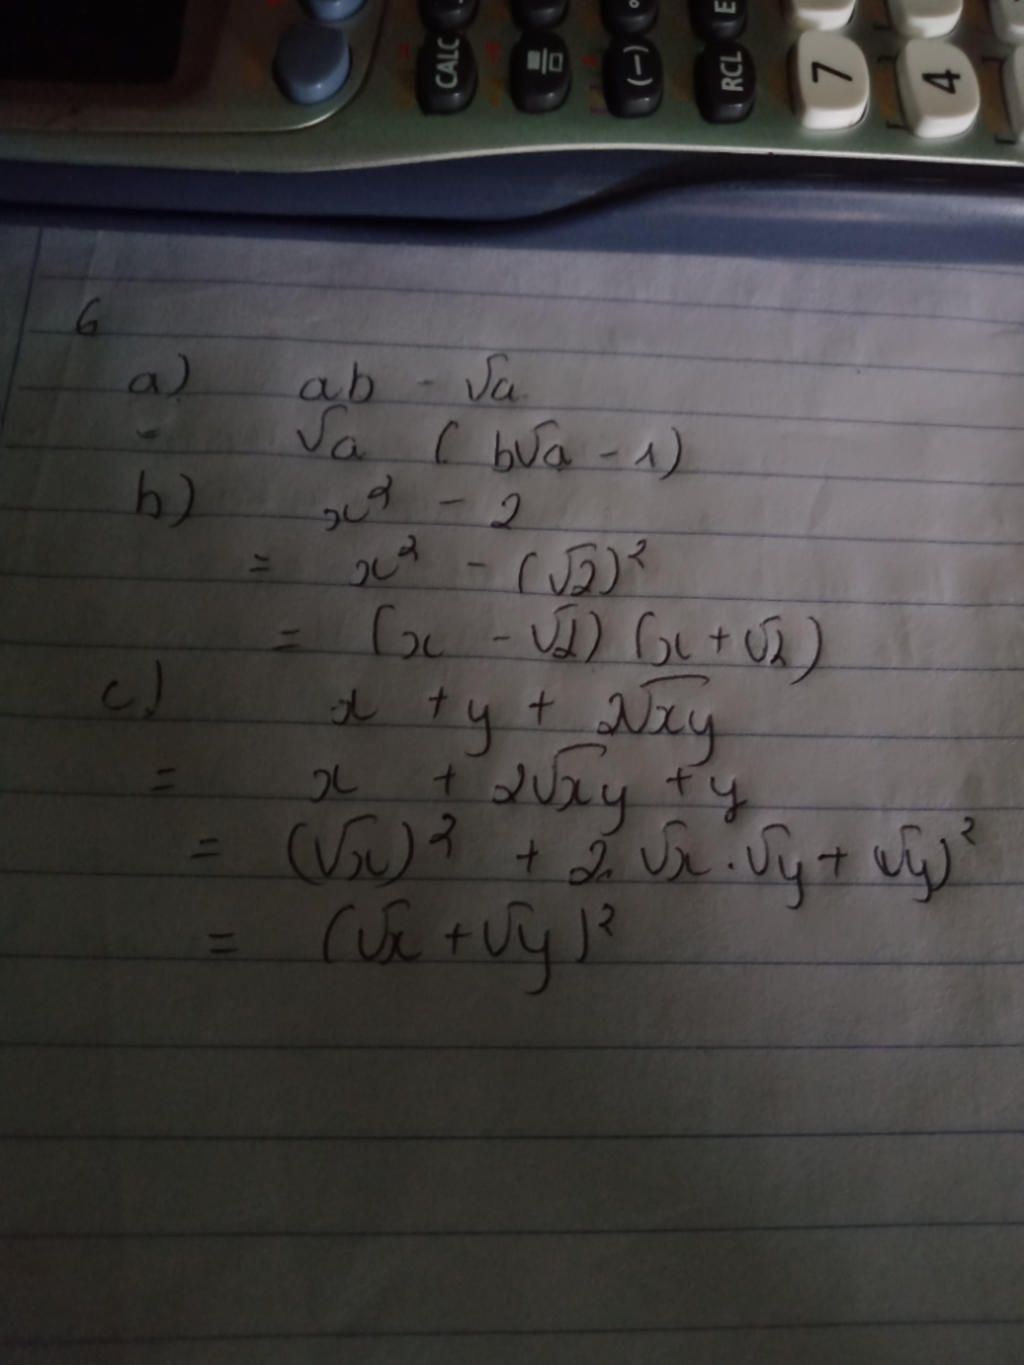 CALC
(−)
RCL
E
7
4
6
a) ab - √a
- √a (b√a - 1)
b) x² - 2
= x² - (√2)²
= (x - √2) (x + √2)
c) x + y + 2√xy
= x + 2√xy + y
= (√x)² + 2. √x . √y + √y)²
= (√x + √y)²